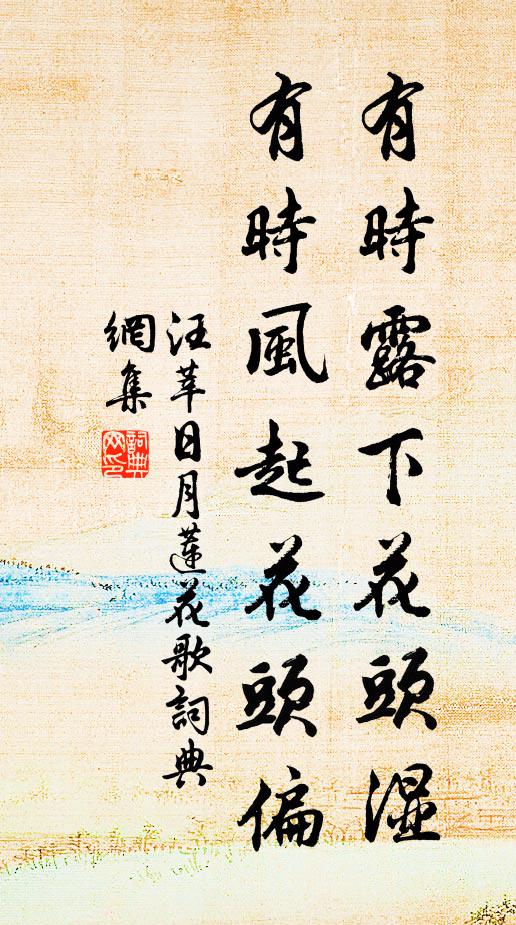 有時露下花頭濕
有時風起花頭偏
汪莘日月蓮花歌詞典
網集
詞典網印